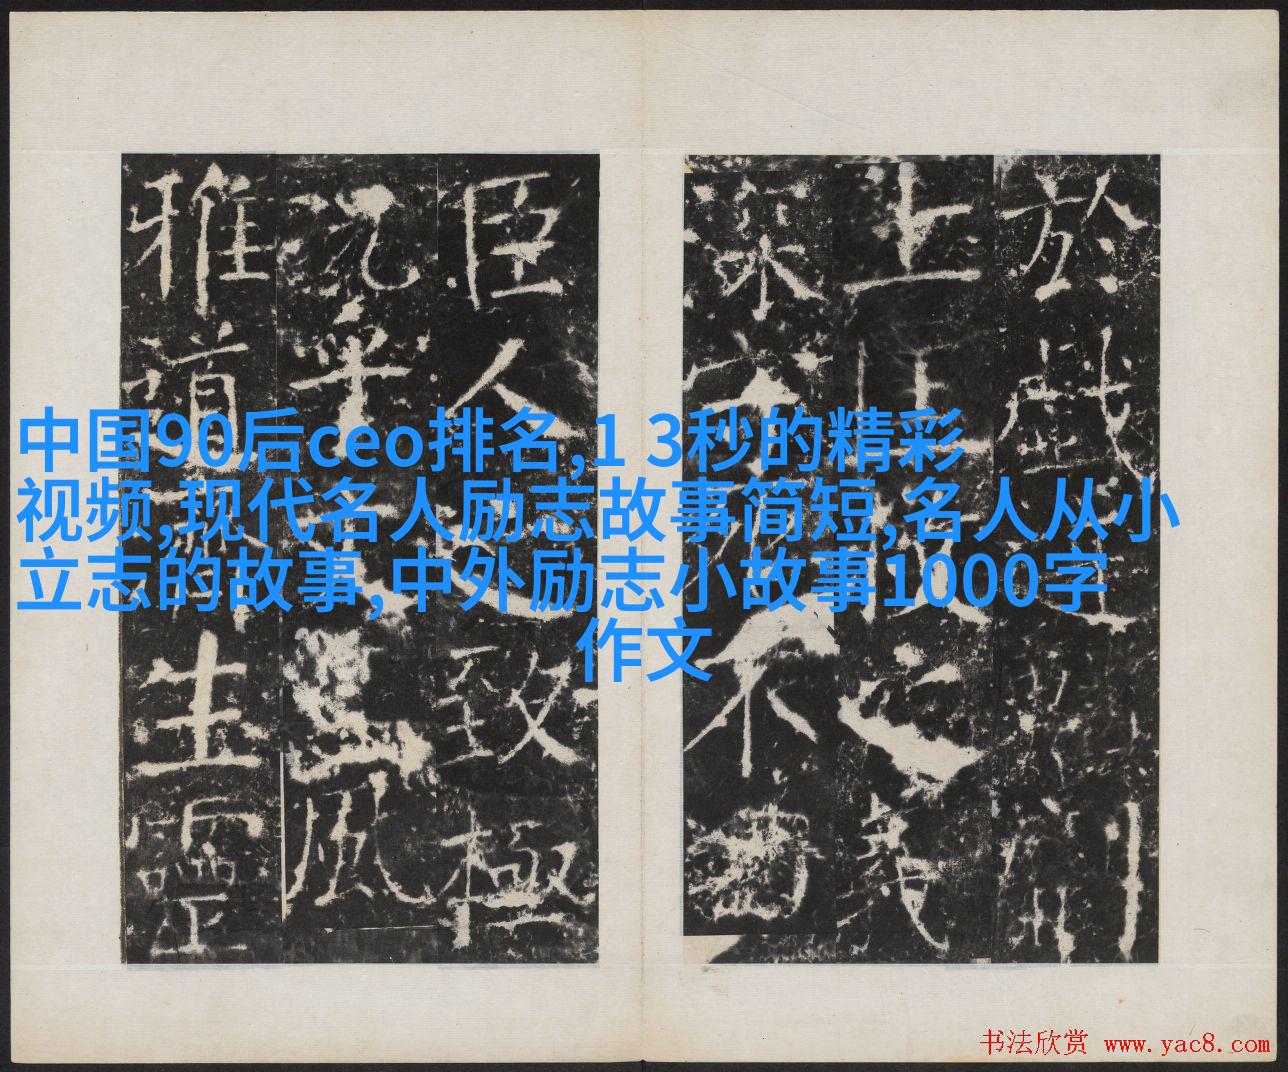 中国90后ceo排名,1 3秒的精彩
视频,现代名人励志故事简短,名人从小
立志的故事,中外励志小故事1000字
作文
於戲
上之義
不
臣人致極
況乎風
雅道生靈
书法欣赏 www.yac8.com